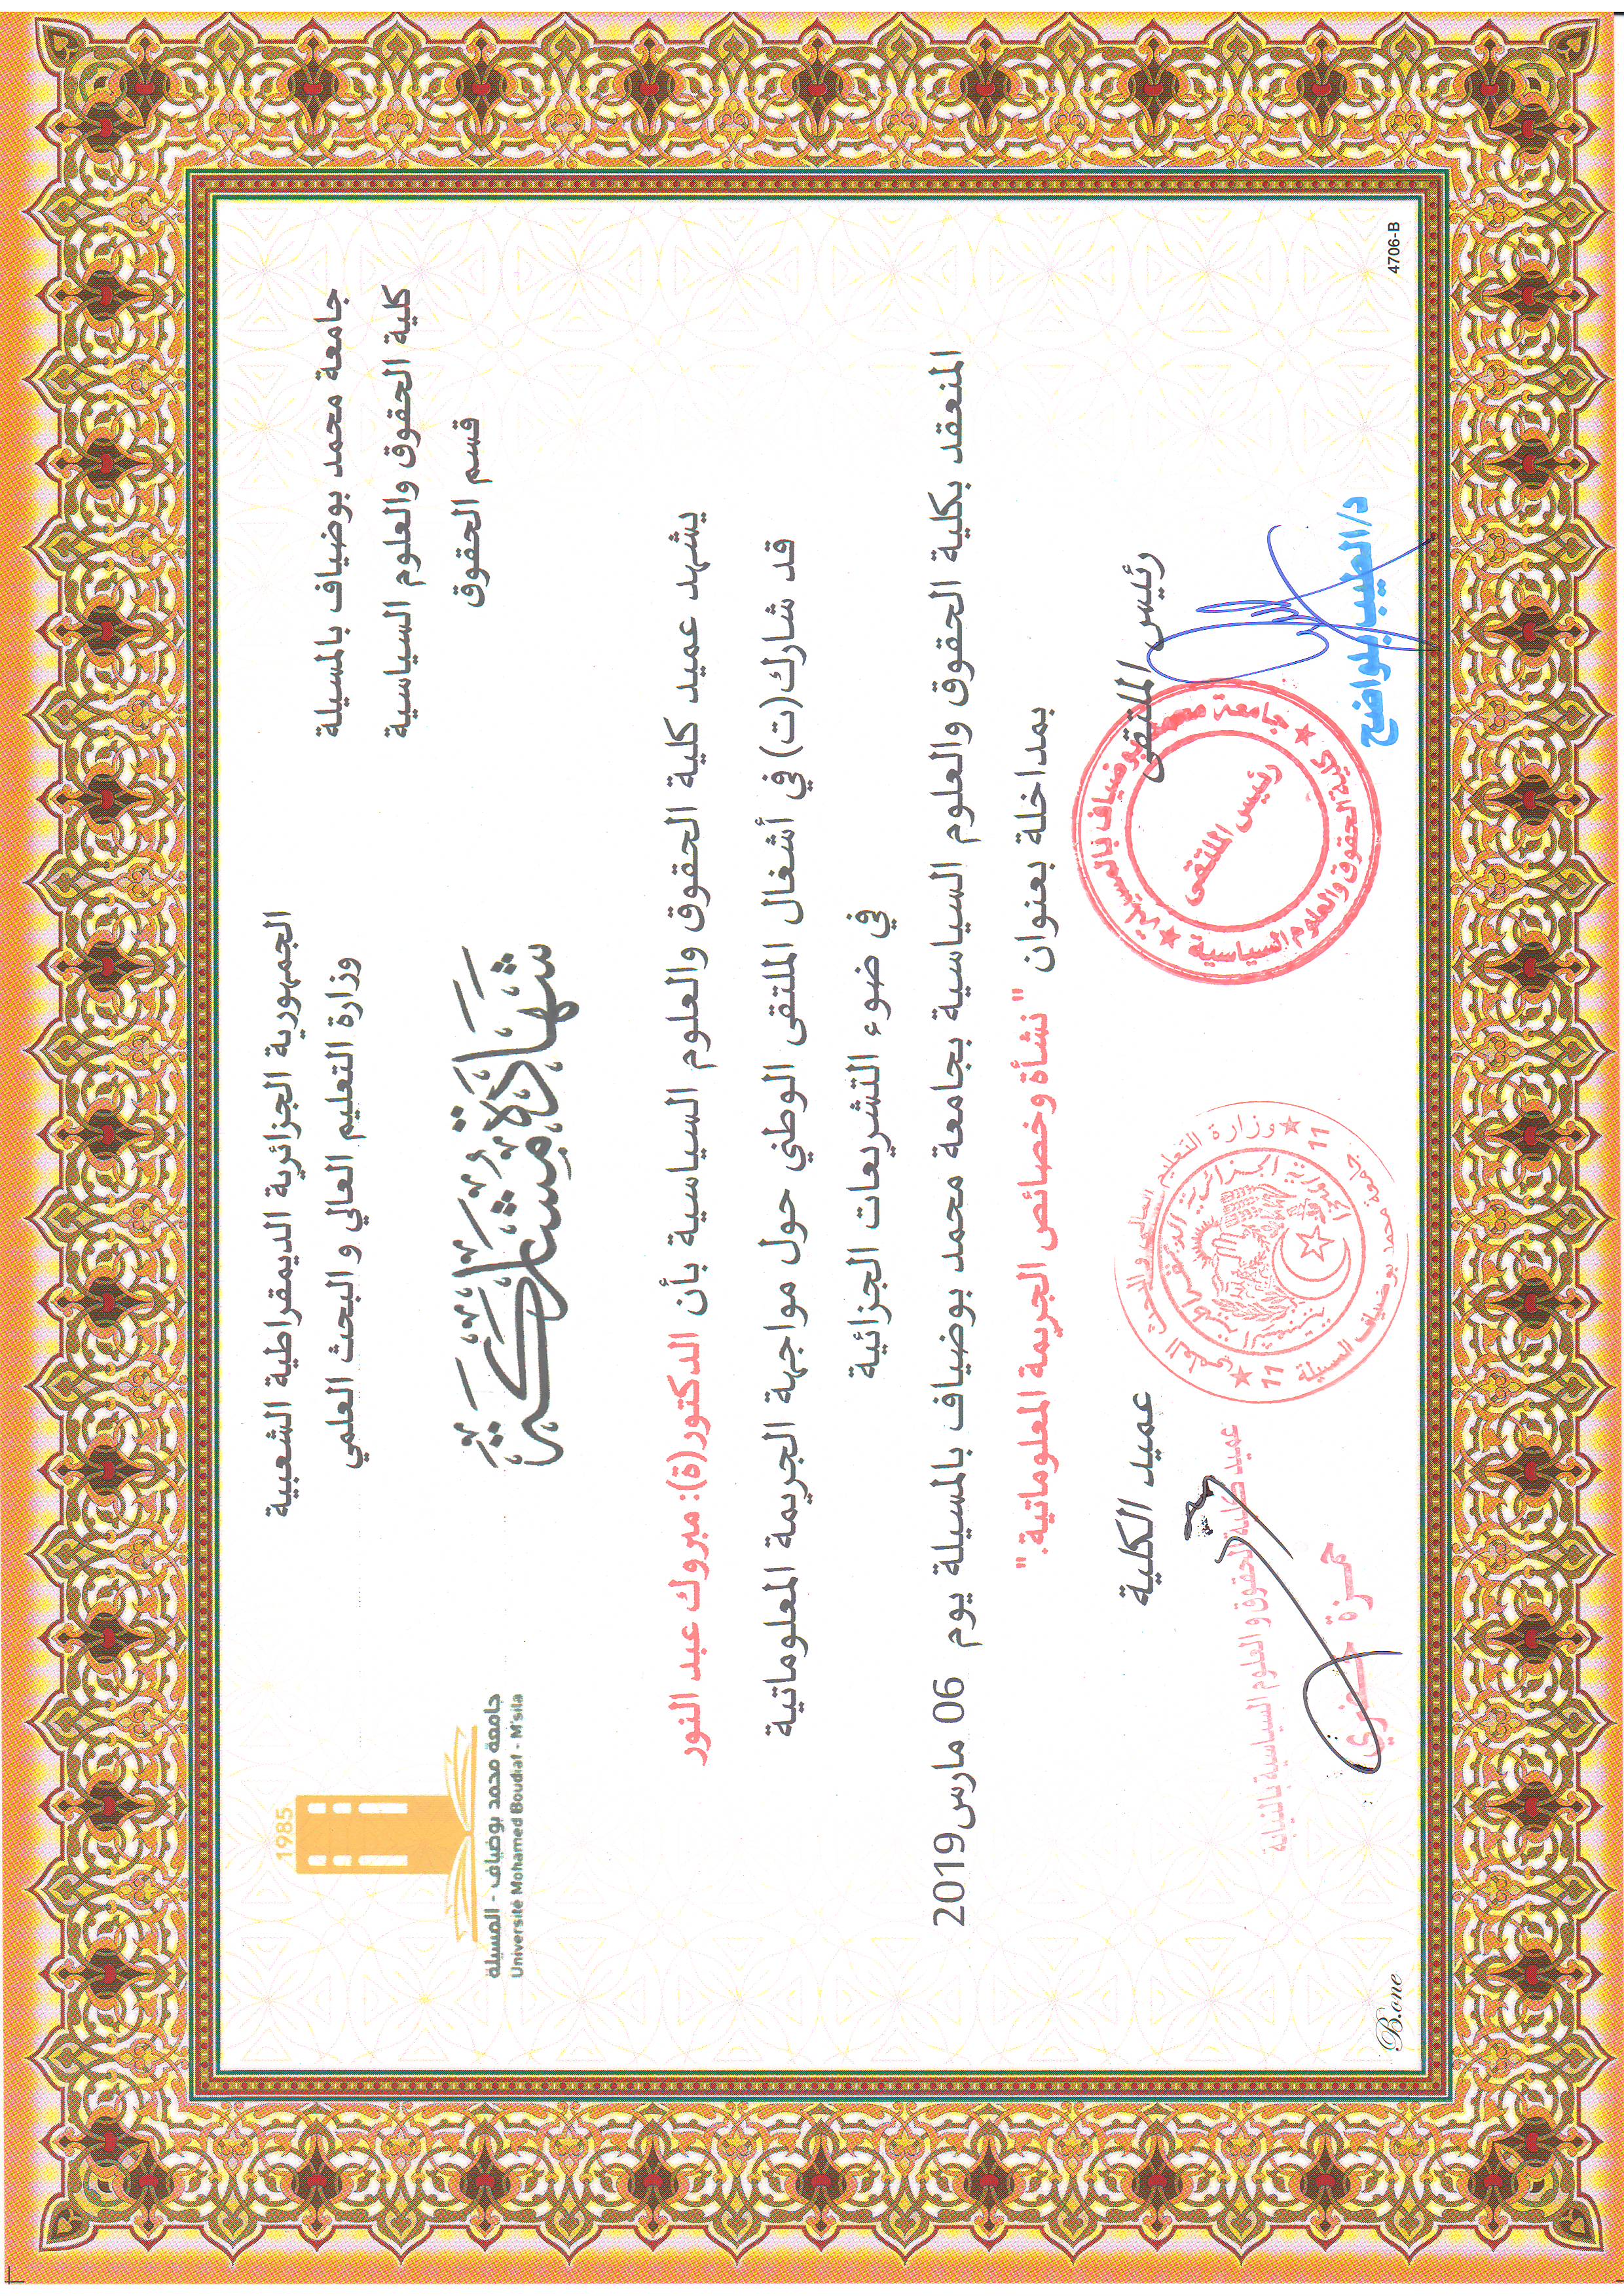 الجمهورية الجزائرية الديمقراطية الشعبية
وزارة التعليم العالي و البحث العلمي
جامعة محمد بوضياف بالمسيلة
كلية الحقوق والعلوم السياسية
قسم الحقوق
1985
جامعة محمد بوضياف - المسيلة
Université Mohamed Boudiaf - M'sila
شهادة مشاركة
يشهد عميد كلية الحقوق والعلوم السياسية بأن الدكتور(ة): مبروك عبد النور
قد شارك(ت) في أشغال الملتقى الوطني حول مواجهة الجريمة المعلوماتية
في ضوء التشريعات الجزائية
المنعقد بكلية الحقوق والعلوم السياسية بجامعة محمد بوضياف بالمسيلة يوم 06 مارس2019
بمداخلة بعنوان " نشأة وخصائص الجريمة المعلوماتية."
رئيس الملتقى
عميد الكلية
جامعة محمد بوضياف بالمسيلة
كلية الحقوق والعلوم السياسية
رئيس الملتقى
د/الطيب بلواضح
وزارة التعليم العالي و البحث العلمي
جامعة محمد بوضياف المسيلة
11 11
الجمهورية الجزائرية الديمقراطية الشعبية
عميد كلية الحقوق و العلوم السياسية بالنيابة
حمزة خضري
B.one
4706-B